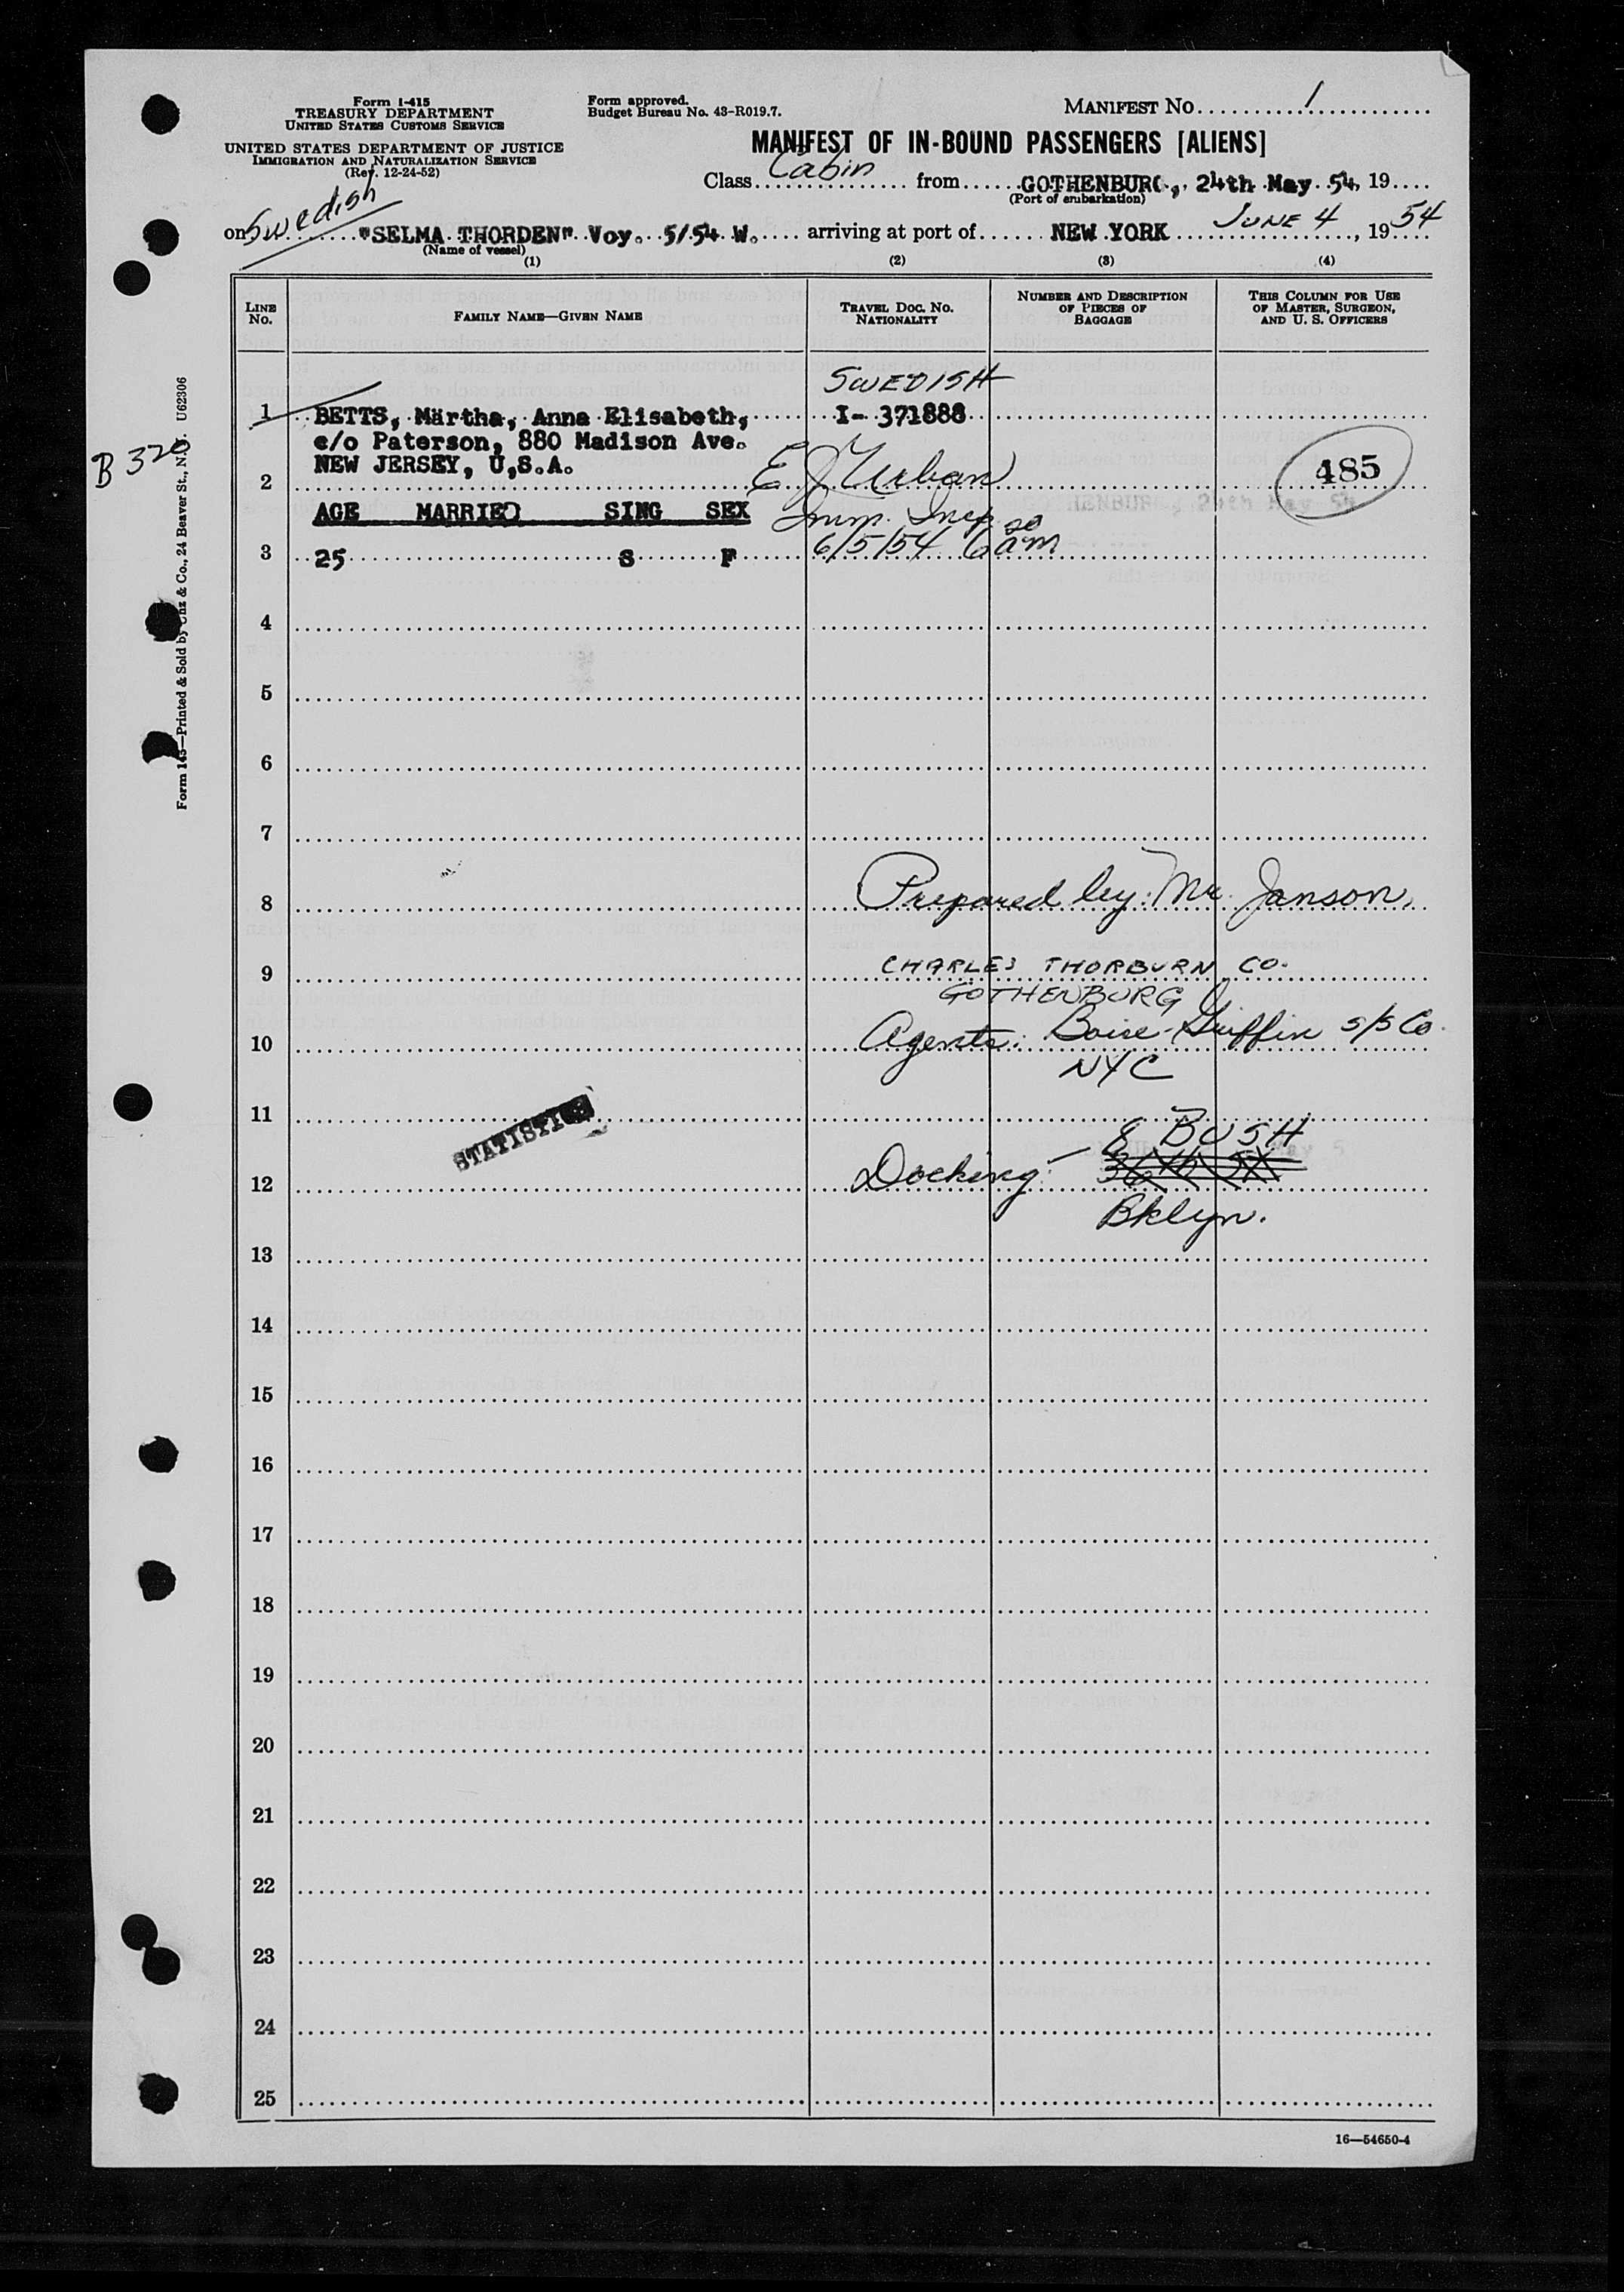 Form I-415
TREASURY DEPARTMENT
UNITED STATES CUSTOMS SERVICE
UNITED STATES DEPARTMENT OF JUSTICE
IMMIGRATION AND NATURALIZATION SERVICE
(Rev. 12-24-52)
Form approved.
Budget Bureau No. 43-R019.7.
MANIFEST NO. 1
MANIFEST OF IN-BOUND PASSENGERS [ALIENS]
Class Cabin from GOTHENBURG, 24th May 54, 19
(Port of embarkation)
on Swedish "SELMA THORDEN" Voy. 5/54 W. arriving at port of NEW YORK JUNE 4, 1954
(Name of vessel)
(1) (2) (3) (4)
LINE NO.
FAMILY NAME—GIVEN NAME
TRAVEL DOC. NO. NATIONALITY
NUMBER AND DESCRIPTION OF PIECES OF BAGGAGE
THIS COLUMN FOR USE OF MASTER, SURGEON, AND U. S. OFFICERS
SWEDISH
1 BETTS, Märtha, Anna Elisabeth, I- 371888
c/o Paterson, 880 Madison Ave.
NEW JERSEY, U,S.A.
B 320
485
2 E J Urban
AGE MARRIED SING SEX
Imm. Insp.
3 25 S F 6/5/54 6 50 am
4
5
6
7
8 Prepared by: Mr. Janson,
9 CHARLES THORBURN CO.
GOTHENBURG
10 Agents: Boise-Griffin S/S Co.
NYC
11
STATISTICS
8 BUSH
12 Docking: 36th St
Bklyn.
13
14
15
16
17
18
19
20
21
22
23
24
25
16—54650-4
Form 145—Printed & Sold by Unz & Co., 24 Beaver St., N.Y. U62306